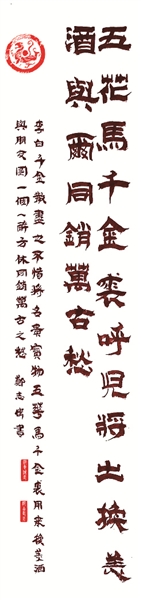 五花馬千金裘呼児將出換美
酒與爾同銷萬古愁
李白千金散盡之不惜將名貴寶物五華馬千金裘用來換美酒
與朋友圖一個一醉方休同銷萬古之愁 鄭志書